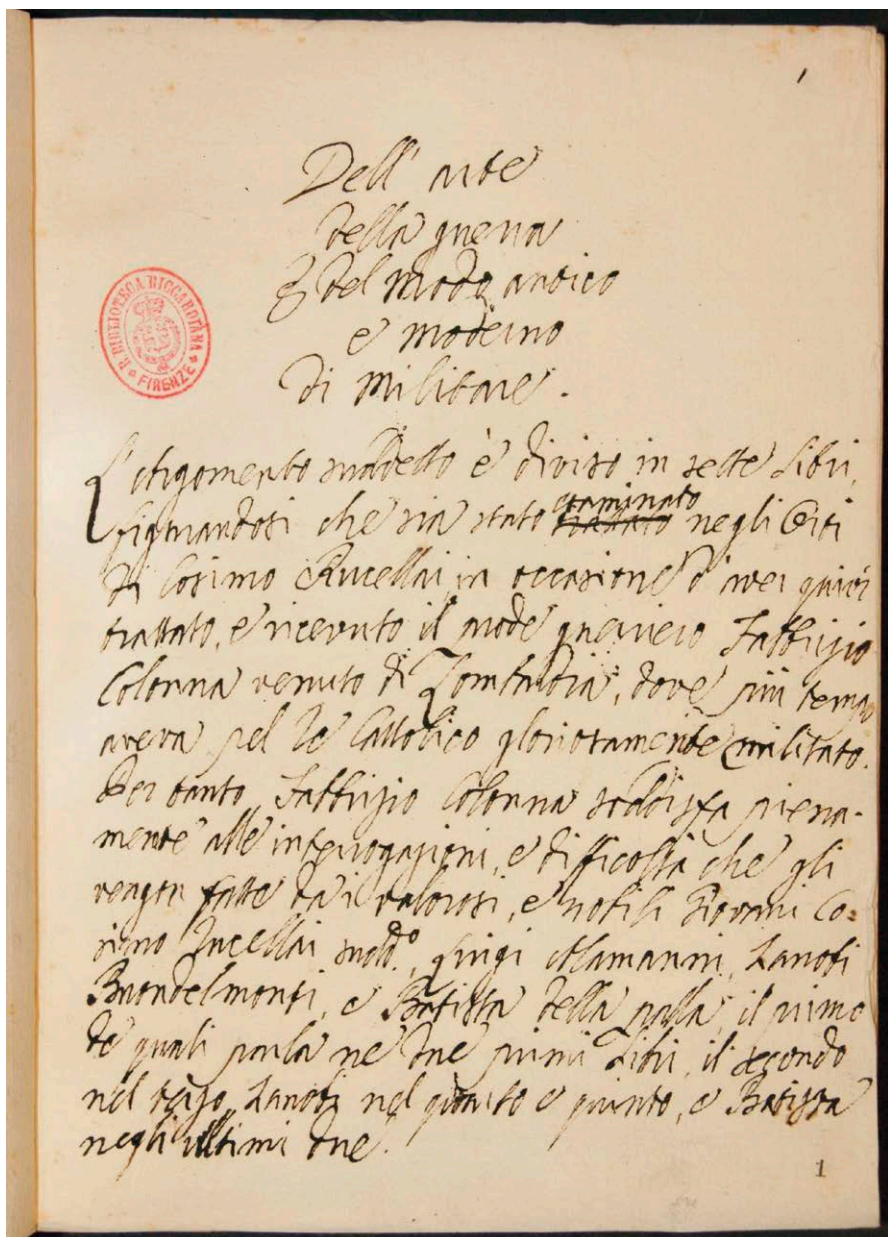 1
Dell' arte
della guerra
E del modo antico
e moderno
di militare.
R. BIBLIOTECA RICCARDIANA
FIRENZE
L'argomento suddetto è diviso in sette Libri,
figurandosi che sia stato esaminato negli Orti
di Cosimo Rucellai, in occasione d' aver quivi
trattato, e ricevuto il prode guerriero Fabbrizio
Colonna venuto di Lombardia, dove più tempo
aveva pel Re Cattolico gloriosamente militato.
Per tanto Fabbrizio Colonna soddisfa piena-
mente alle interrogazioni, e difficoltà che gli
vengon fatte da i valorosi, e nobili Giovani Co-
simo Rucellai sudd.º, Luigi Alamanni, Zanobi
Buondelmonti, e Batista della palla, il primo
de quali parla ne due primi Libri, il secondo
nel terzo, Zanobi nel quarto e quinto, e Batista
negli ultimi due.
1